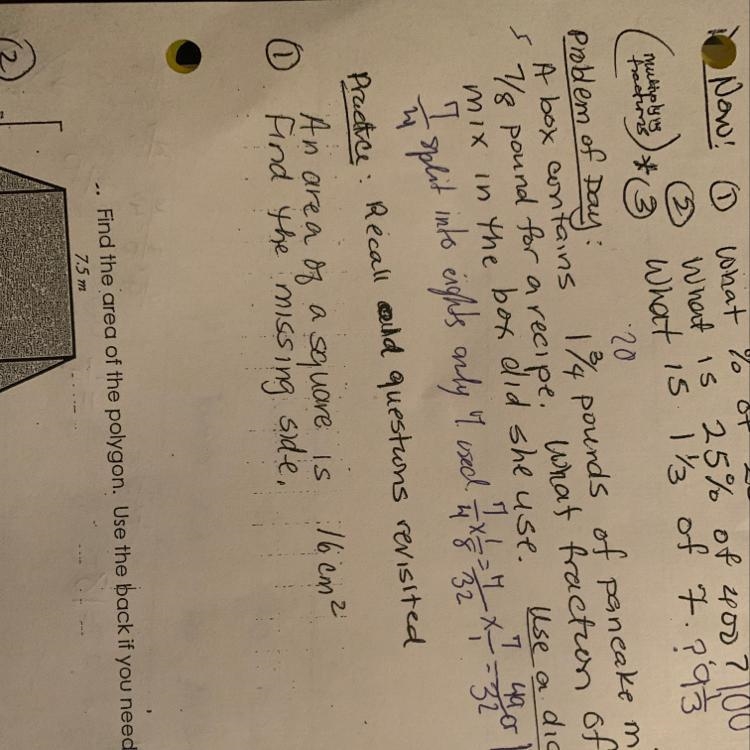 Now! ① What % of
② What is 25% of 400? 100
(multiplying fractions) * ③ What is 1 1/3 of 7.? 9 1/3
.20
Problem of Day:
A box contains 1 3/4 pounds of pancake m
7/8 pound for a recipe. What fraction of
mix in the box did she use. Use a dia
7/4 split into eights only 7 used 7/4 x 1/8 = 7/32 x 7/1 = 49/32 or 1
Practice: Recall questions revisited
① An area of a square is 16 cm²
Find the missing side.
.. Find the area of the polygon. Use the back if you need
7.5 m
②